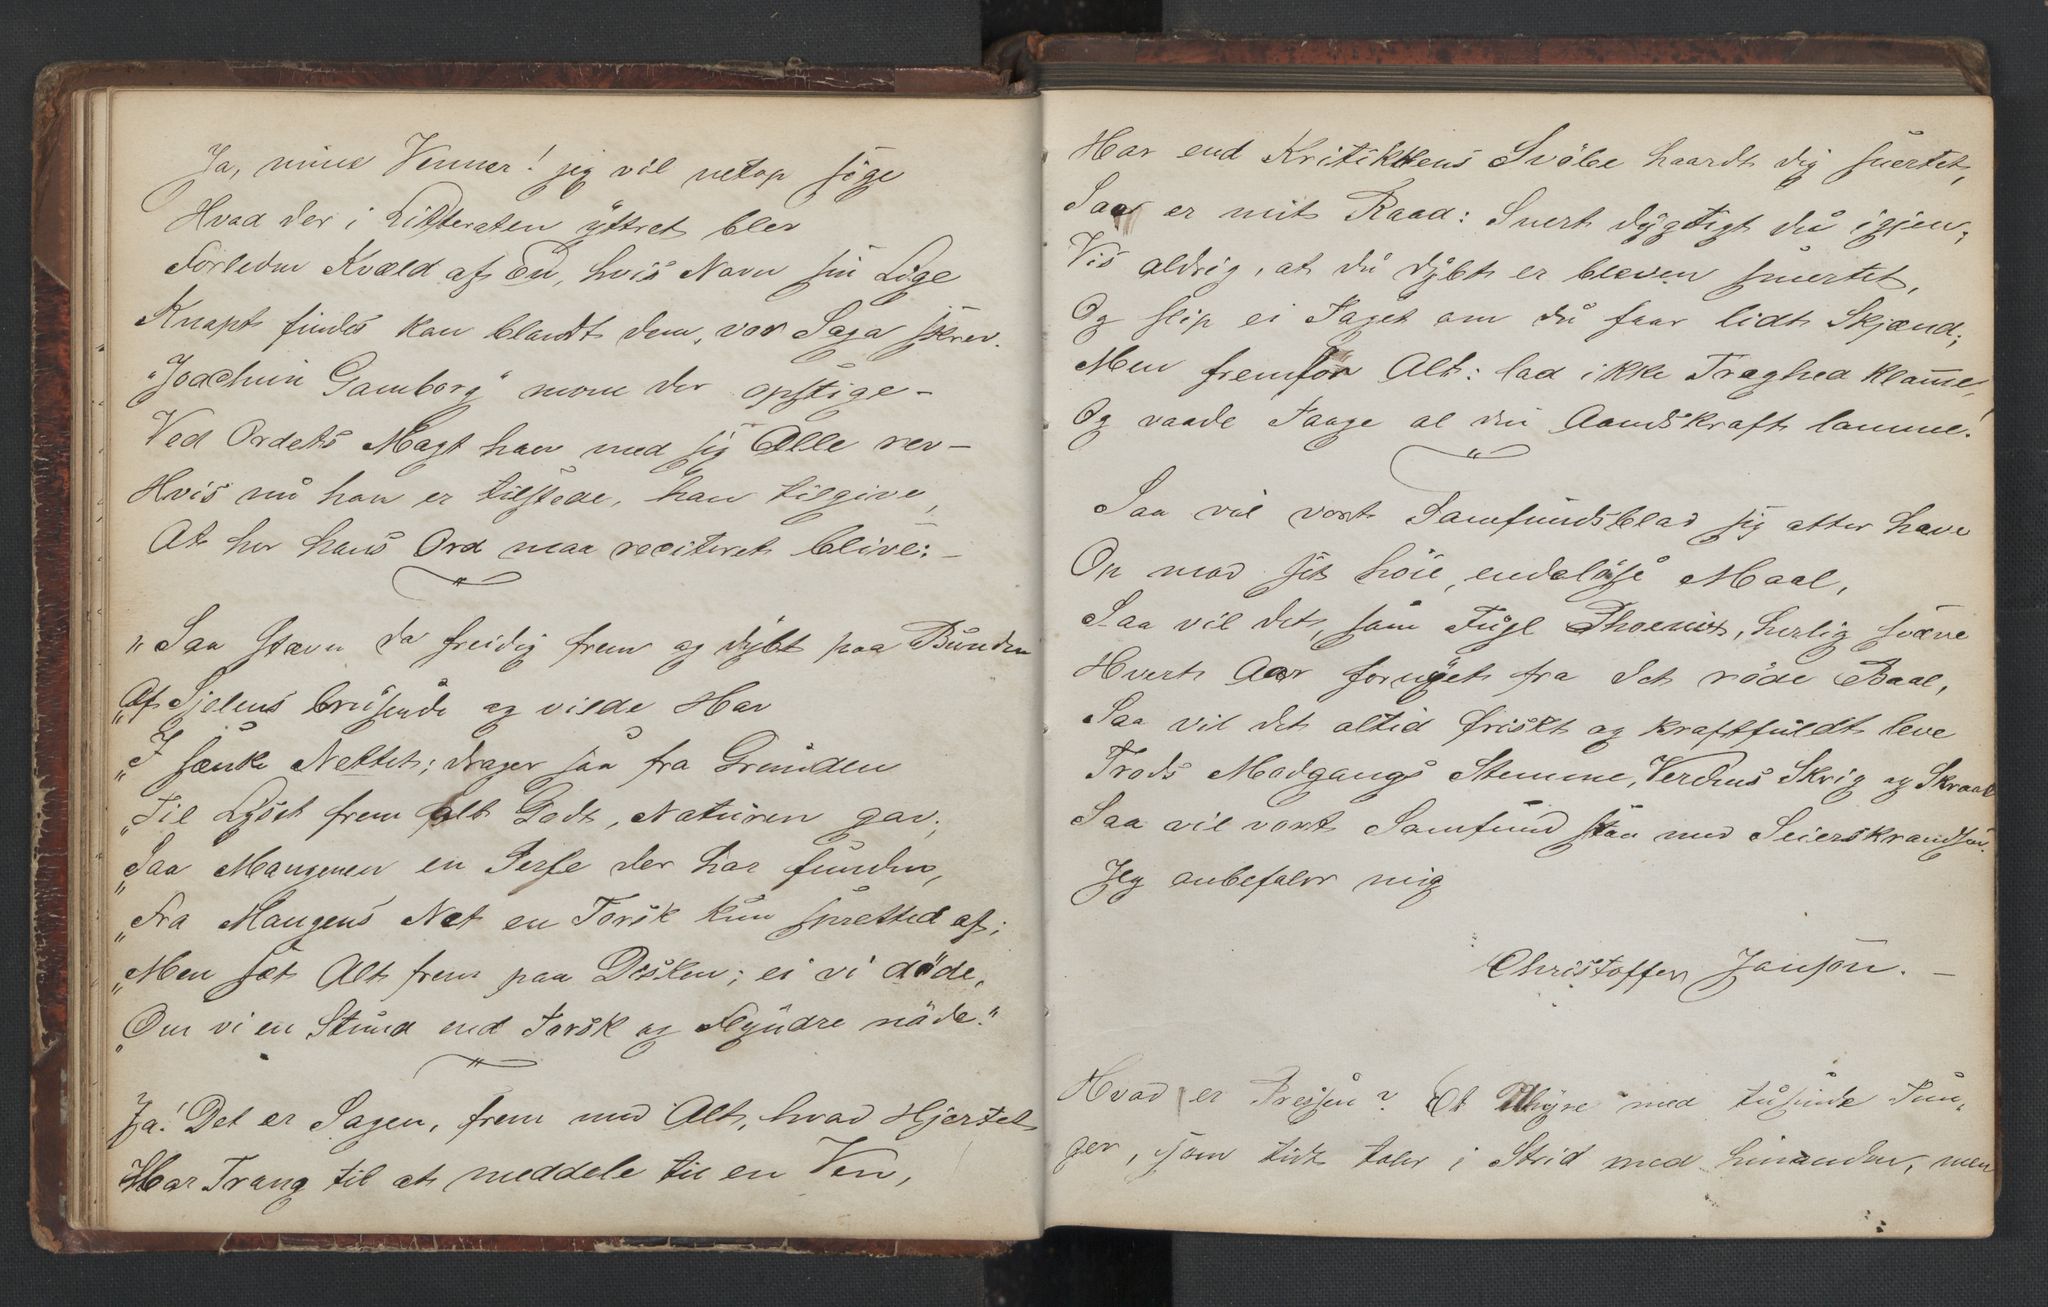 Ja, mine Venner! jeg vil netop söge
Hvad der i Litteraten ÿttret blev
Forleden Kvæld af En, hvis Navn sin Lige
Knapt findes kan blandt dem, vor Saga skrev.
"Joachim Gamborg" mon der opstige –
Ved Ordets Magt han med sig Alle rev –
Hvis nu han er tilstede, han tilgive,
At her hans Ord maa reciteret blive: –
"Saa stævn da freidig frem og dÿbt paa Bunden
"Af Sjelens brusende og vilde Hav
"I sænke Nettet; drager saa fra Grunden
"Til Lyset frem alt Godt, Naturen gav;
"Saa Mangen en Perle der har funden,
"Fra Mangens Net en Torsk kun spretted af;
"Men sæt Alt frem paa Disken; ei vi döde,
"Om vi en Stund end Torsk og Flÿndre nöde."
Ja! Det er Sagen, frem med Alt, hvad Hjertet
Har Trang til at meddele til en Ven,
Har end Kritikkens Svöbe haardt dig snertet,
Saa er mit Raad: Snert dÿgtigt du igjen;
Vis aldrig, at du dÿbt er bleven smertet,
Og slip ei Taget om du faar lidt Skjænd;
Men fremfor Alt: lad ikke Træghed klamme,
Og vaade Taage al din Aandskraft lamme!
Saa vil vort Samfundsblad sig atter hæve
Op mod sit höie, endelöse Maal,
Saa vil det, som Fugl Phoenix, herlig svæve
Hvert Aar fornÿet fra det röde Baal,
Saa vil det altid friskt og kraftfuldt leve
Trods Modgangs Stemme, Verdens Skrig og Skraal
Saa vil vort Samfund staa med Seierskrandsen.
Jeg anbefaler mig
Christoffer Janson. –
Hvad er Pressen? Et Uhÿre med tusinde Tun-
ger, som tidt taler i Strid med hinanden, men